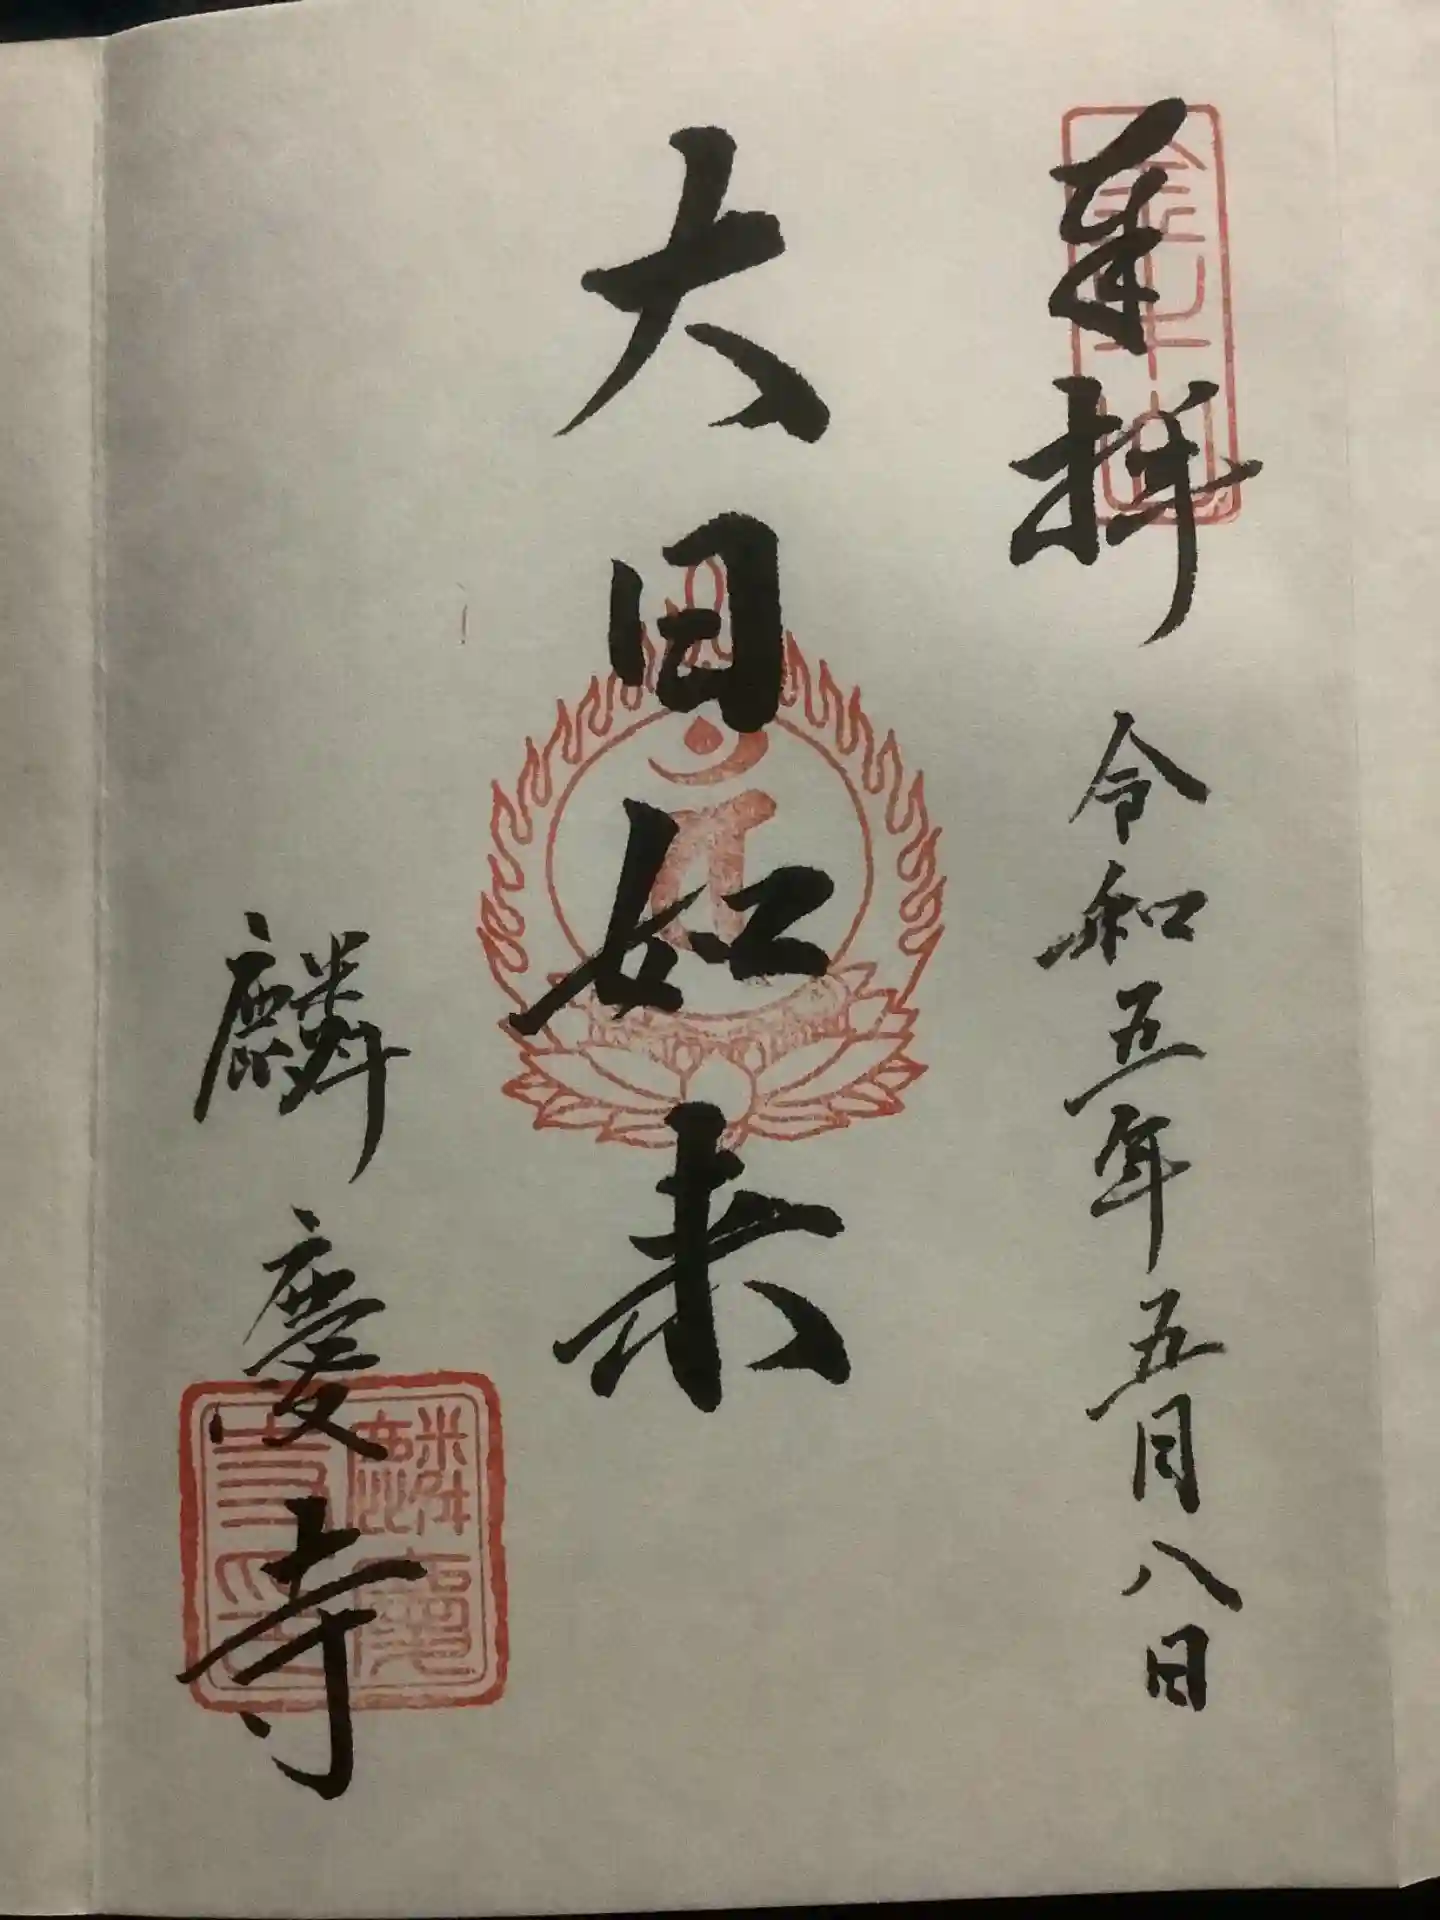 奉拝 令和五年五月八日
大日如来
麟慶寺
麟慶寺印